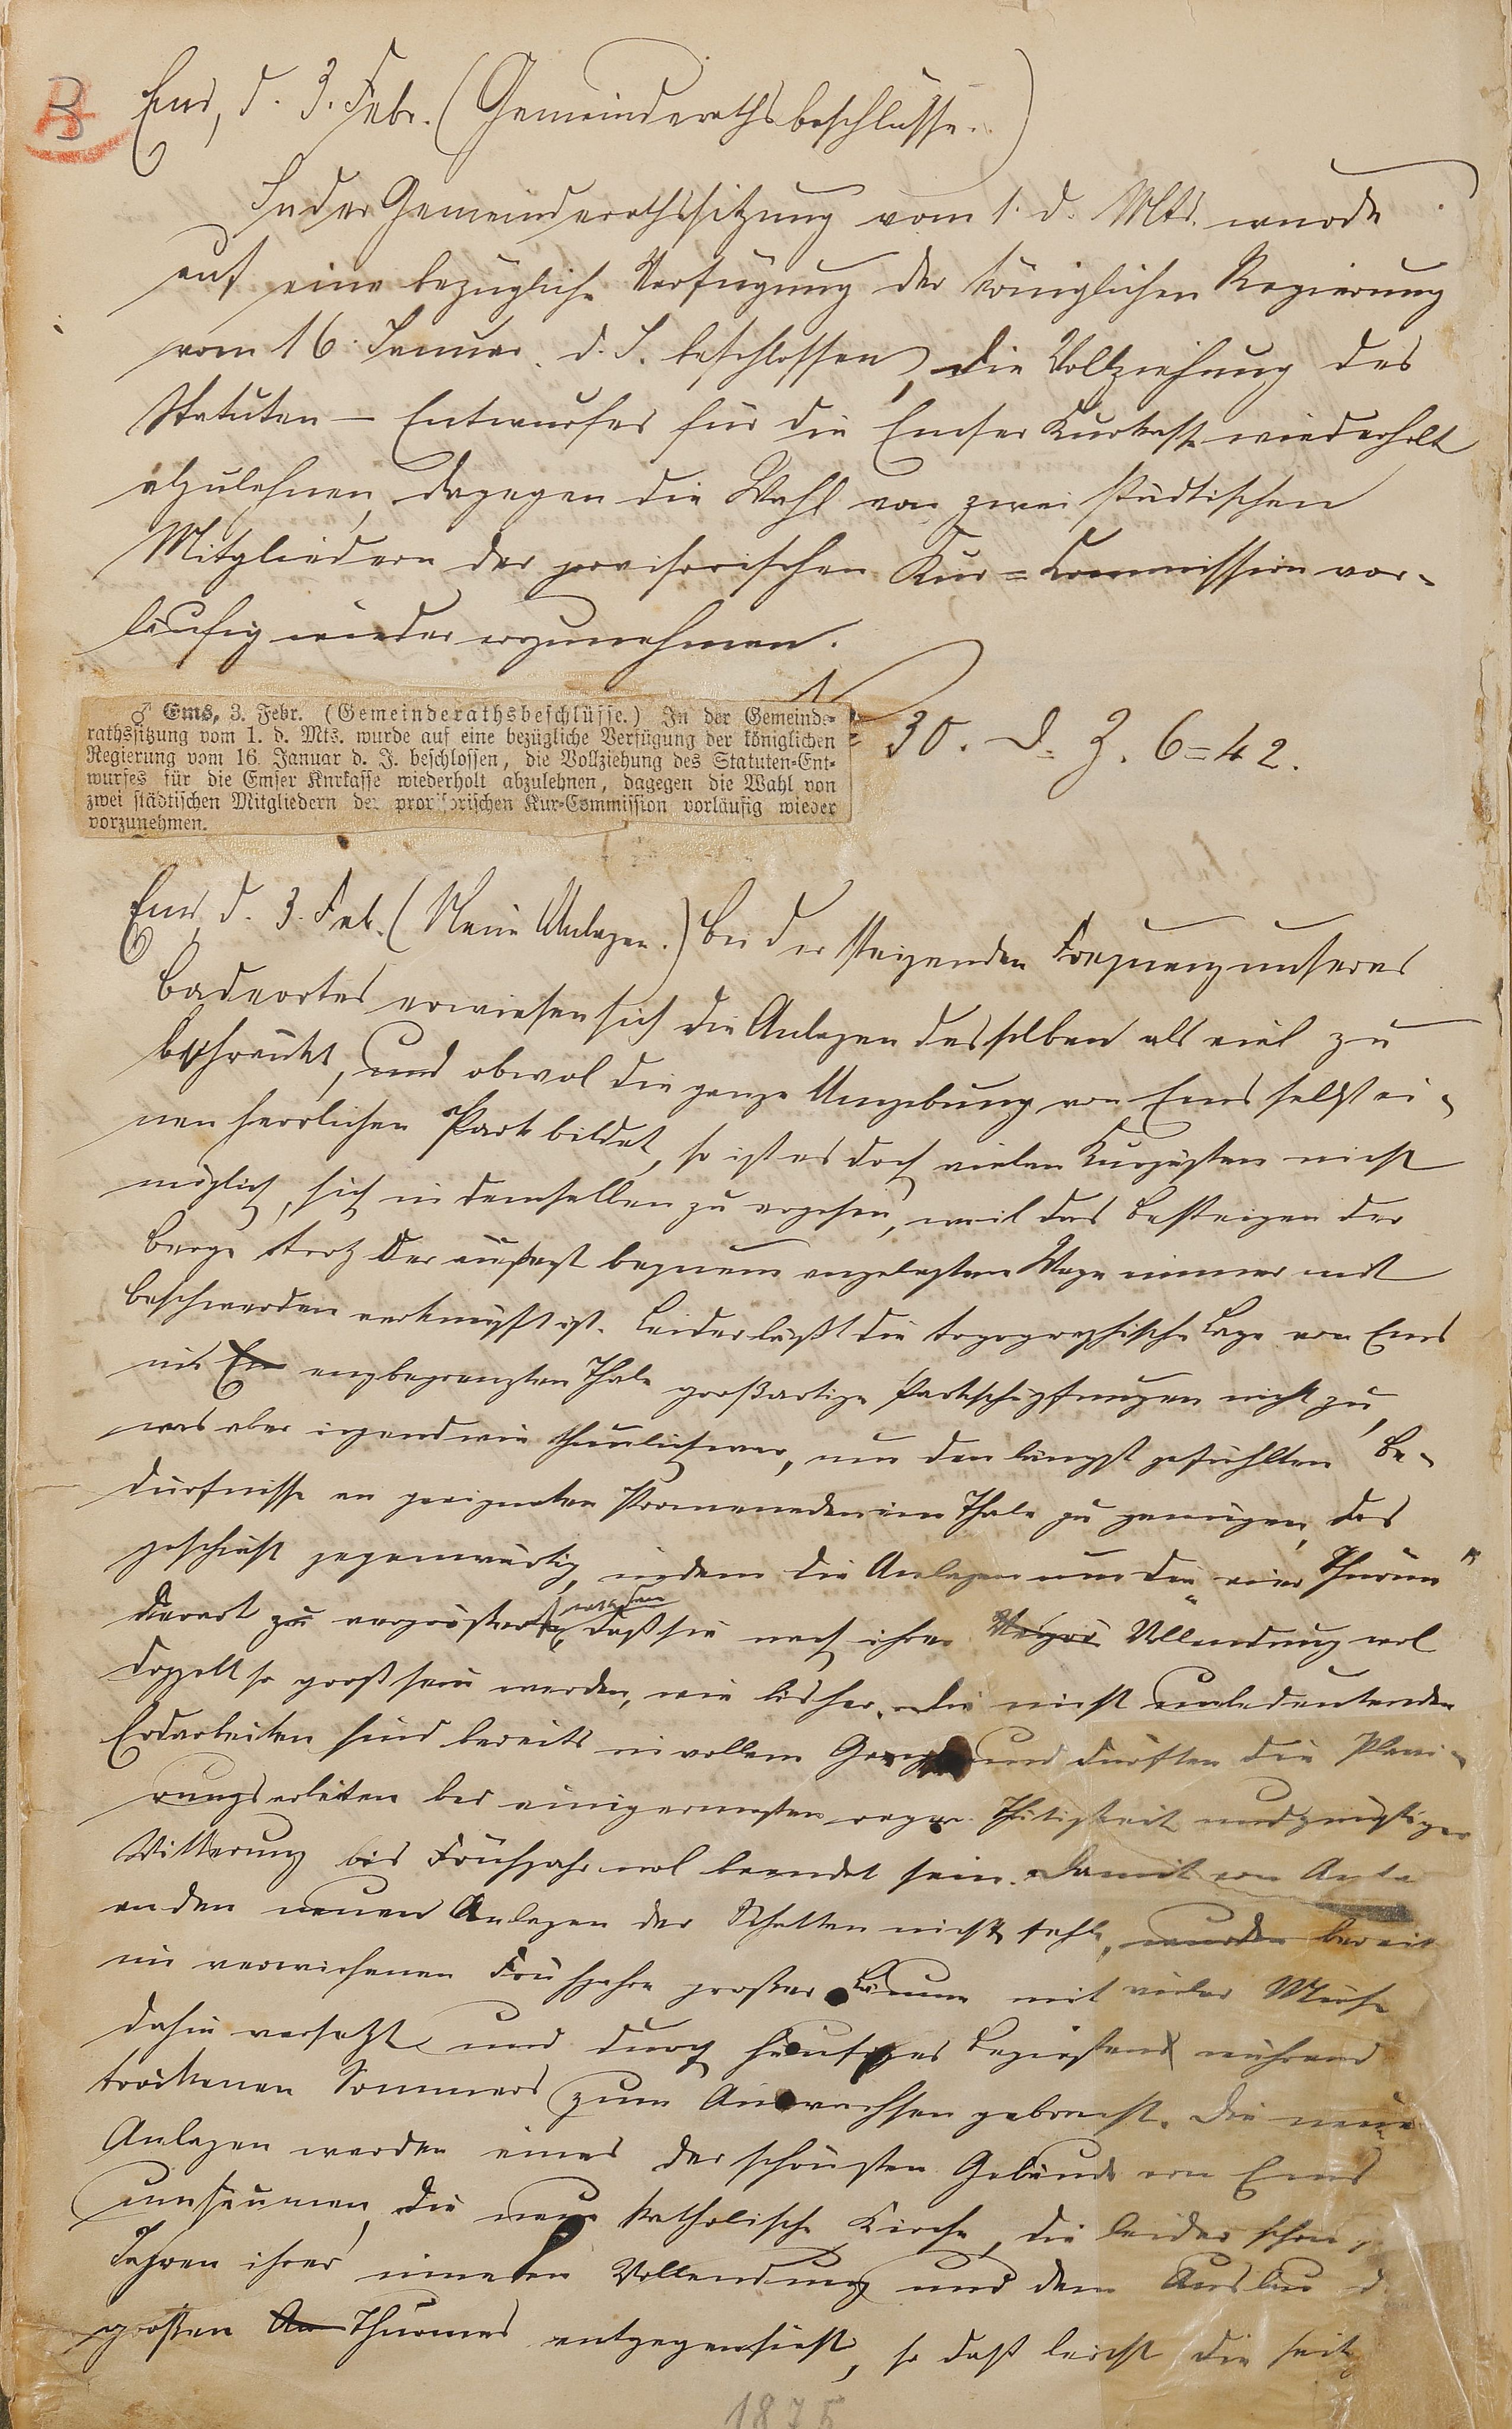 B
Ems, d. 3. Febr. (Gemeinderathsbeschlüsse.)
In der Gemeinderathssitzung vom 1. d. Mts. wurde
auf eine bezügliche Verfügung der königlichen Regierung
vom 16. Januar d. J. beschlossen, die Vollziehung des
Statuten-Entwurfes für die Emser Kurkasse wiederholt
abzulehnen, dagegen die Wahl von zwei städtischen
Mitgliedern der provisorischen Kur=Commission vor-
läufig wieder vorzunehmen.
♂ Ems, 3. Febr. (Gemeinderathsbeschlüsse.) In der Gemeinde-
rathssitzung vom 1. d. Mts. wurde auf eine bezügliche Verfügung der königlichen
Regierung vom 16. Januar d. J. beschlossen, die Vollziehung des Statuten-Ent-
wurfes für die Emser Knrkasse wiederholt abzulehnen, dagegen die Wahl von
zwei städtischen Mitgliedern der provisorischen Kur-Commission vorläufig wieder
vorzunehmen.
30. d. Z. 6=42.
Ems, d. 3. Feb. (Neue Anlagen.) Bei der steigenden Frequenz unseres
Badeortes erwiesen sich die Anlagen desselben als viel zu
beschränkt, und obwol die ganze Umgebung von Ems selbst ei-
nen herrlichen Park bildet, so ist es doch vielen Kurgästen nicht
möglich, sich in demselben zu ergehen, weil das Besteigen der
Berge trotz der äußerst bequem angelegten Wege immer mit
Beschwerden verknüpft ist. Leider läßt die topographische Lage von Ems
im En engbegrenzten Thale großartige Parkschöpfungen nicht zu,
was aber irgendwie thunlich war, um den längst gefühlten Be-
dürfnisse an geeigneten Promenaden im Thale zu genügen, das
geschieht gegenwärtig, indem die Anlagen um die „vier Thürme“
derart zu vergrößert werden, daß sie nach ihrer Vollendung wol
doppelt so groß sein werden, wie bisher. Die nicht unbedeutenden
Erdarbeiten sind bereits in vollem Gange und dürften die Plani-
rungsarbeiten bei einigermaßen reger Thätigkeit und günstiger
Witterung bis Frühjahr wol beendet sein. Damit von
an den neuen Anlagen der Schatten nicht fehle, wurden bereit
im verwichenen Frühjahre großer Bäume mit vieler Mühe
dahin versetzt und durch häufiges Begießen während
trockenen Sommers zum Anwachsen gebracht. Die neue
Anlagen werden eines der schönsten Gebäude von Ems
umsäumen, die neue katholische Kirche, die leider schon
Jahren ihrer inneren Vollendung und dem Ausbau d
großen An Thurmes entgegensieht, so daß leicht die seit
1875